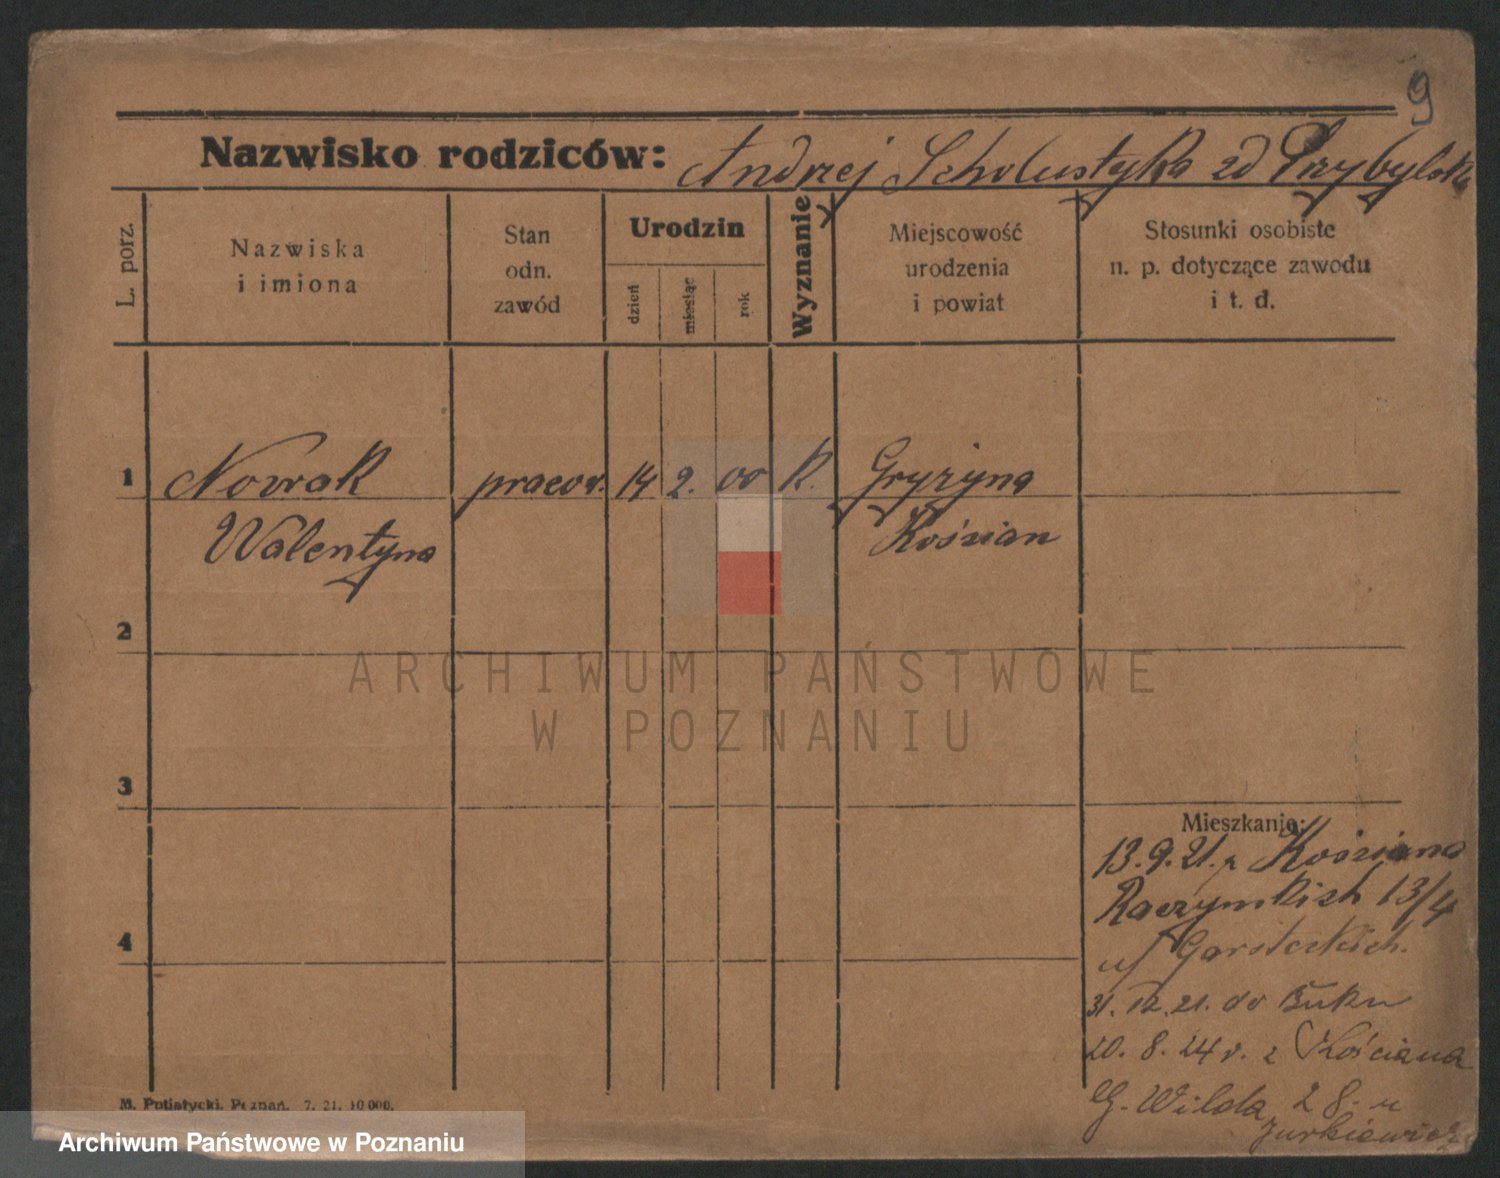 9
Nazwisko rodziców: Andrzej Scholustyka zd Przybylska
L. porz.
Nazwiska
i imiona
Stan
odn.
zawód
Urodzin
dzień
miesiąc
rok
Wyznanie
Miejscowość
urodzenia
i powiat
Stosunki osobiste
n. p. dotyczące zawodu
i t. d.
1 Nowak pracow. 14 2. 00 K. Gryżyna
Walentyna Kościan
2
ARCHIWUM PAŃSTWOWE
W POZNANIU
3
Mieszkanie:
13.9.21. z Kościana
Raczyńskich 13/4
u/ Garsteckich.
4
31.12.21. do Buku
20.8.24 r. z Kościana
G. Wilda 28. u
Jurkiewicz
M. Putiatycki, Poznań. 7. 21. 10 000.
Archiwum Państwowe w Poznaniu